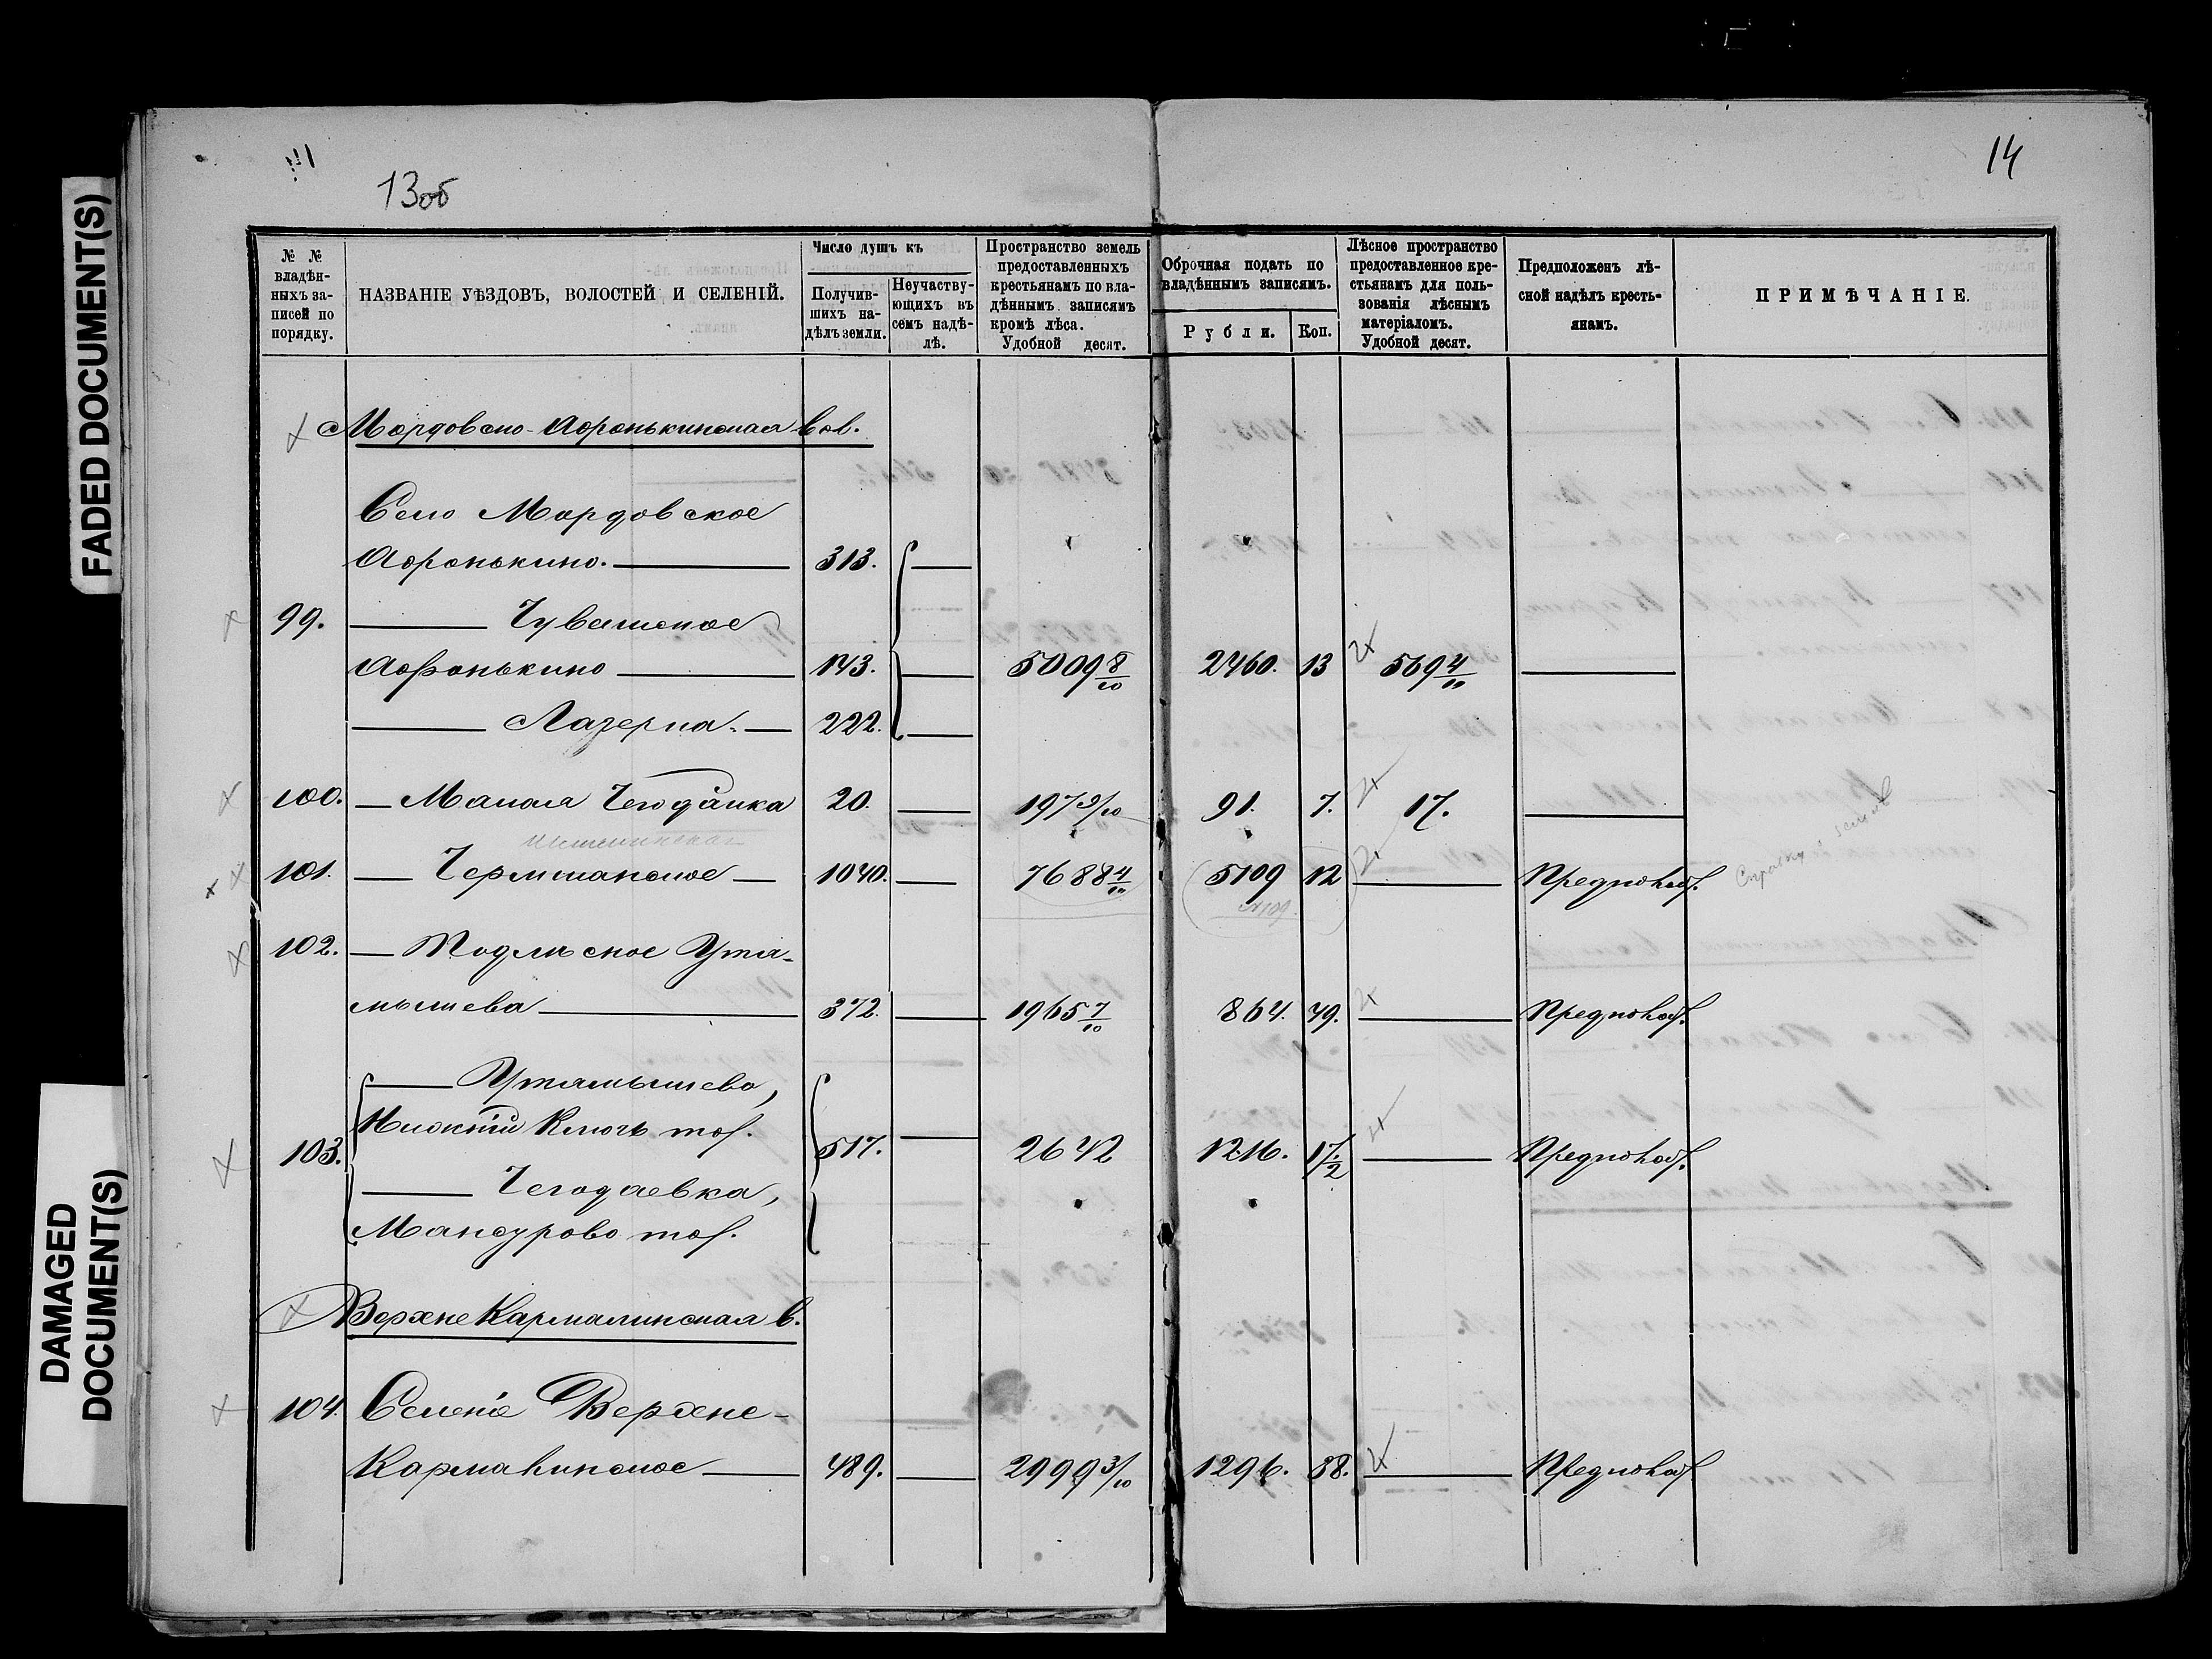 FADED DOCUMENT(S)
DAMAGED DOCUMENT(S)
13об
14
№ № владѣн-ныхъ за-писей по порядку.
НАЗВАНІЕ УѢЗДОВЪ, ВОЛОСТЕЙ И СЕЛЕНІЙ.
Число душъ къ
Получив-шихъ на-дѣлъ земли.
Неучаству-ющихъ въ семъ надѣ-лѣ.
Пространство земель предоставленныхъ крестьянамъ по вла-дѣннымъ записямъ кромѣ лѣса. Удобной десят.
Оброчная подать по владѣннымъ записямъ.
Рубли.
Коп.
Лѣсное пространство предоставленное кре-стьянамъ для поль-зованія лѣснымъ матеріаломъ. Удобной десят.
Предположенъ лѣ-сной надѣлъ кресть-янамъ.
ПРИМѢЧАНІЕ.
Мордовско-Афонькинская вол.
Село Мордовское
Афонькино. 313.
99. Чувашское
Афонькино 143. 5009 8/10 2460. 13 569 4/10
Лазерка. 222.
100. Малая Чегодайка 20. 197 9/10 91. 7. 17.
101. Черемшанское 1040. 7688 4/10 5109 12 Предполож.
5109.
102. Подлѣсное Утя-
мышева 372. 1965 7/10 864. 49. Предполож.
Утямышево,
103. Ключъ тож. 517. 2642 1216. 17/2 Предполож.
Чегодаевка,
Мансурово тож.
Верхне Кармалинская в.
104. Селеніе Верхне-
Кармалинское 489. 2999 3/10 1296. 38. Предполож